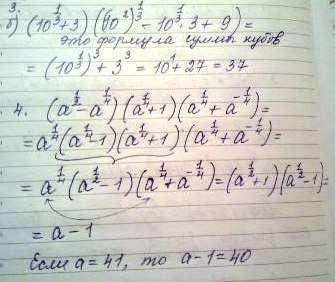 3.
б) (10^{1/3}+3)((10^2)^{1/3} - 10^{1/3}·3 + 9) =
это формула суммы кубов
= (10^{1/3})^3 + 3^3 = 10^1 + 27 = 37
4. (a^{1/2} - a^{1/4})(a^{1/4}+1)(a^{1/4}+a^{-1/4}) =
= a^{1/4}(a^{1/4}-1)(a^{1/4}+1)(a^{1/4}+a^{-1/4}) =
= a^{1/4}(a^{1/2}-1)(a^{1/4}+a^{-1/4}) = (a^{1/2}+1)(a^{1/2}-1) =
= a-1
Если a=41, то a-1=40